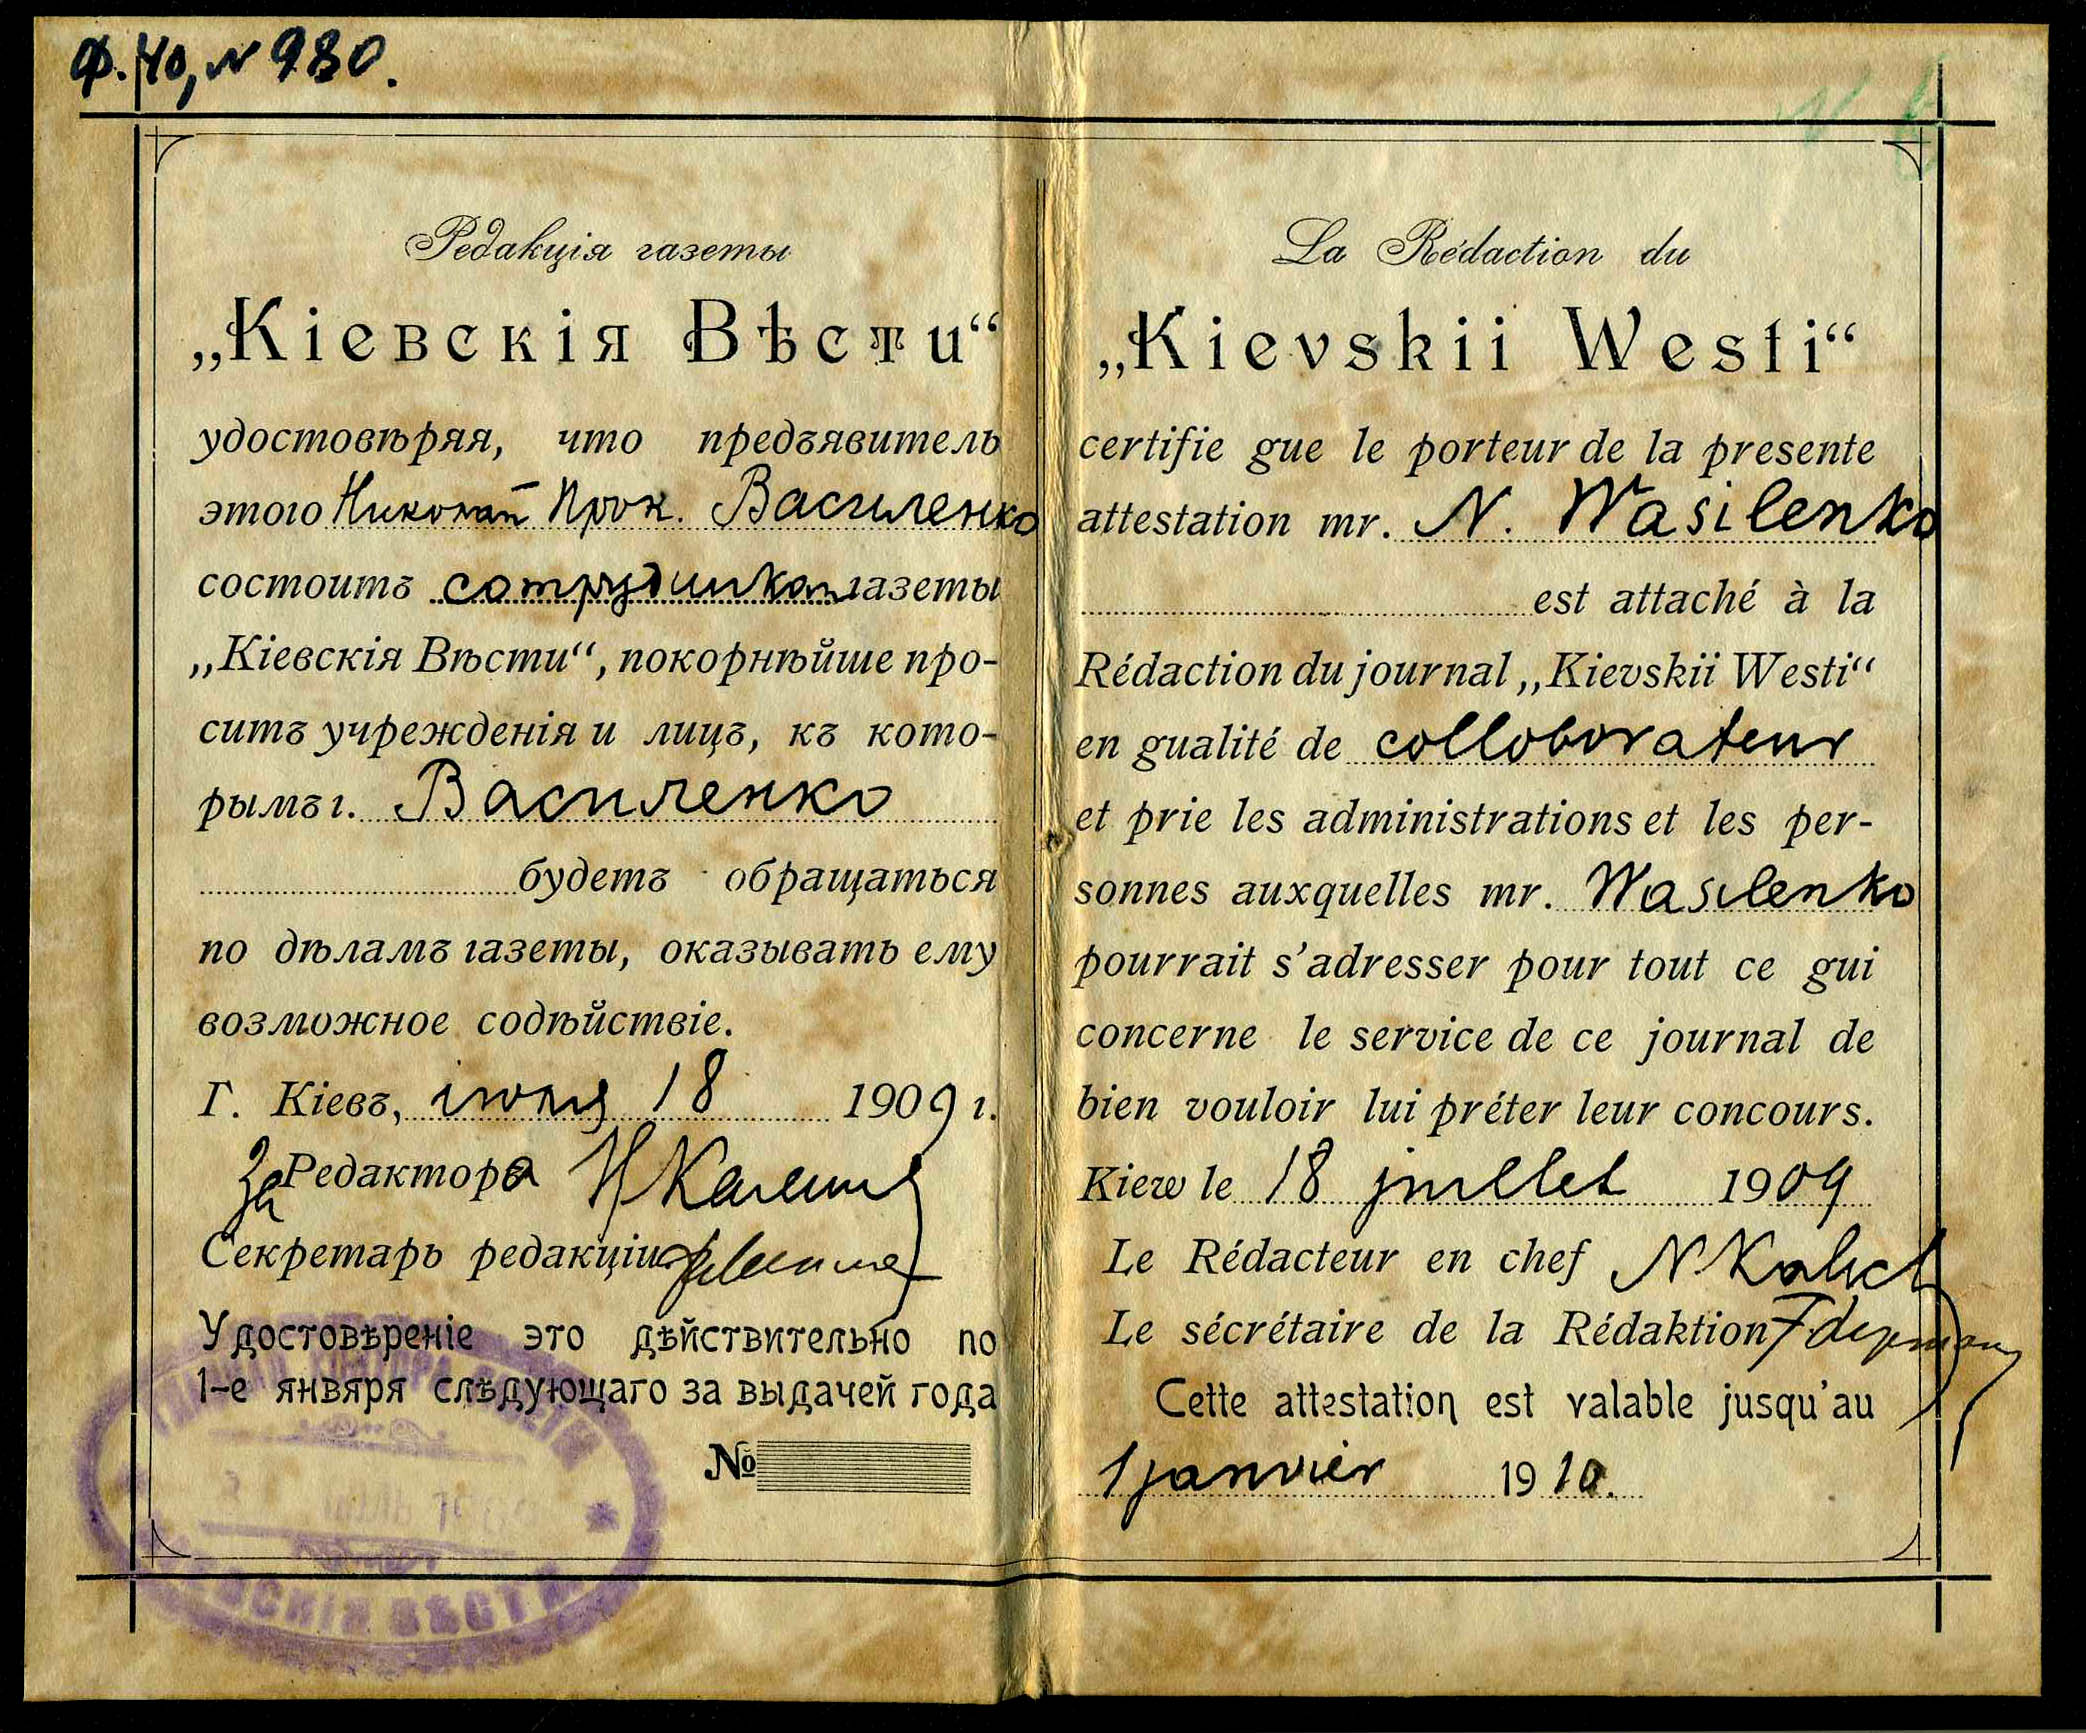 Ф. 40, N 980.
Редакція газеты
„Кіевскія Вѣсти“
удостовѣряя, что предъявитель
этого Николай Прок. Василенко
состоитъ сотрудникомъ газеты
„Кіевскія Вѣсти“, покорнѣйше про-
ситъ учрежденія и лицъ, къ кото-
рымъ г. Василенко
будетъ обращаться
по дѣламъ газеты, оказывать ему
возможное содѣйствіе.
Г. Кіевъ, іюля 18 1909 г.
За Редактора
Секретарь редакціи
Удостовѣреніе это дѣйствительно по
1-е января слѣдующаго за выдачей года
№
КІЕВСКІЯ ВѢСТИ
La Rédaction du
„Kievskii Westi“
certifie gue le porteur de la presente
attestation mr. N. Wasilenko
est attaché à la
Rédaction du journal „Kievskii Westi“
en gualité de colloborateur
et prie les administrations et les per-
sonnes auxquelles mr. Wasilenko
pourrait s’adresser pour tout ce gui
concerne le service de ce journal de
bien vouloir lui préter leur concours.
Kiew le 18 juillet 1909
Le Rédacteur en chef
Le sécrétaire de la Rédaktion
Cette attestation est valable jusqu’au
1 janvier 1910.